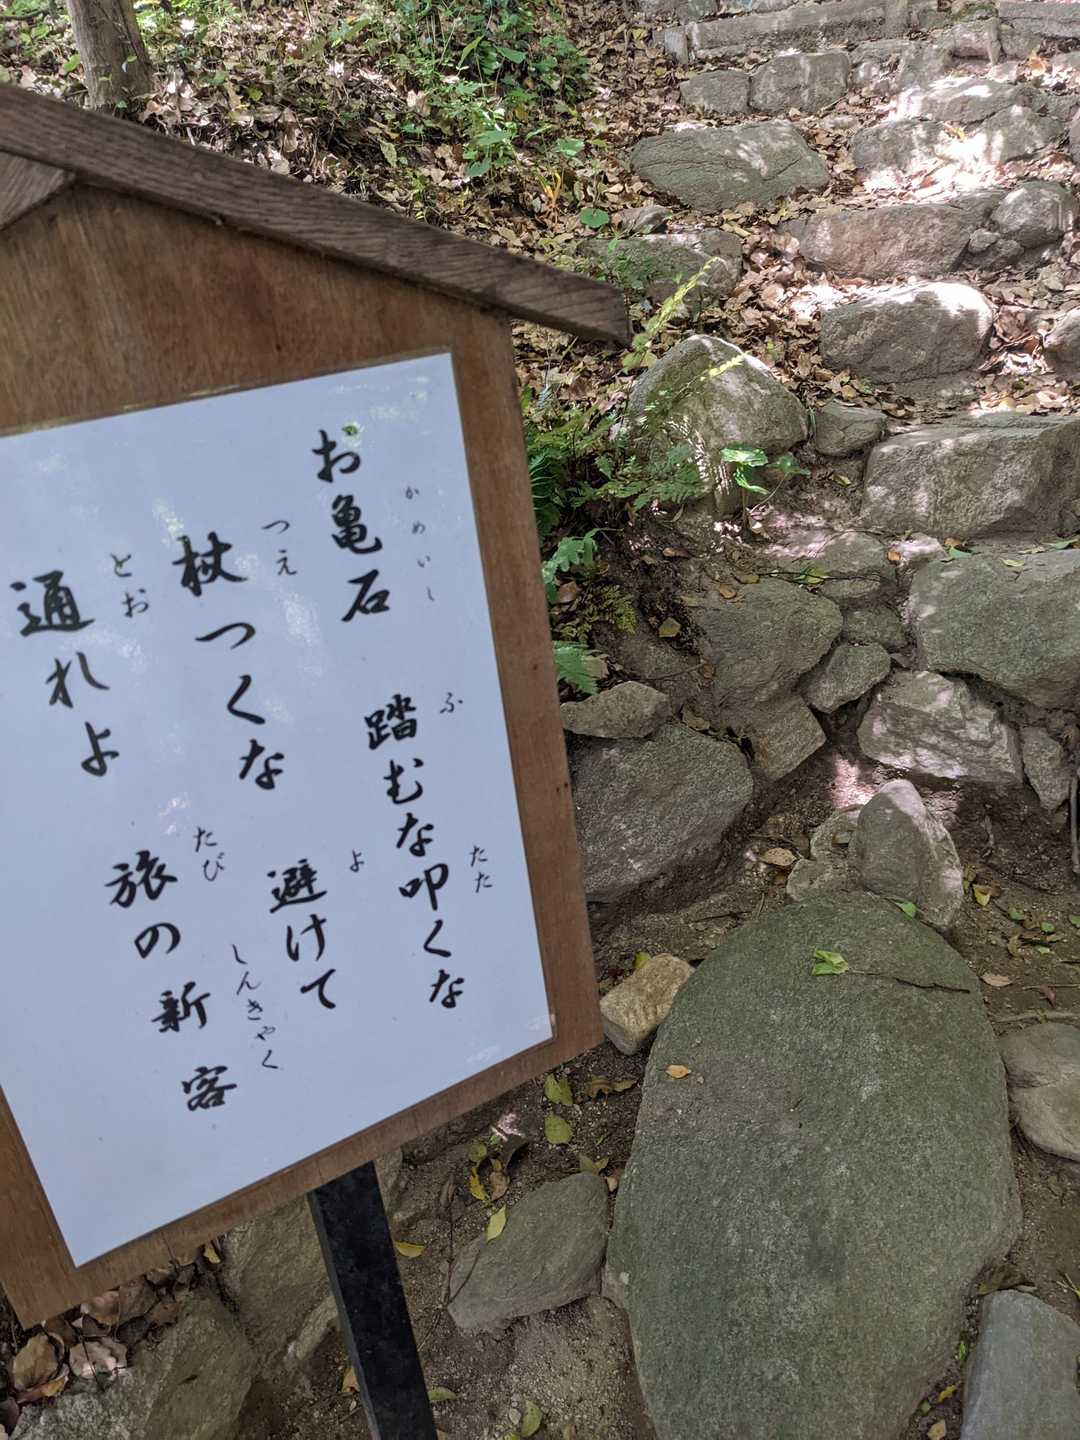 お亀石 踏むな叩くな
杖つくな 避けて
通れよ 旅の新客
かめいし
ふ
たた
つえ
よ
とお
たび
しんきゃく